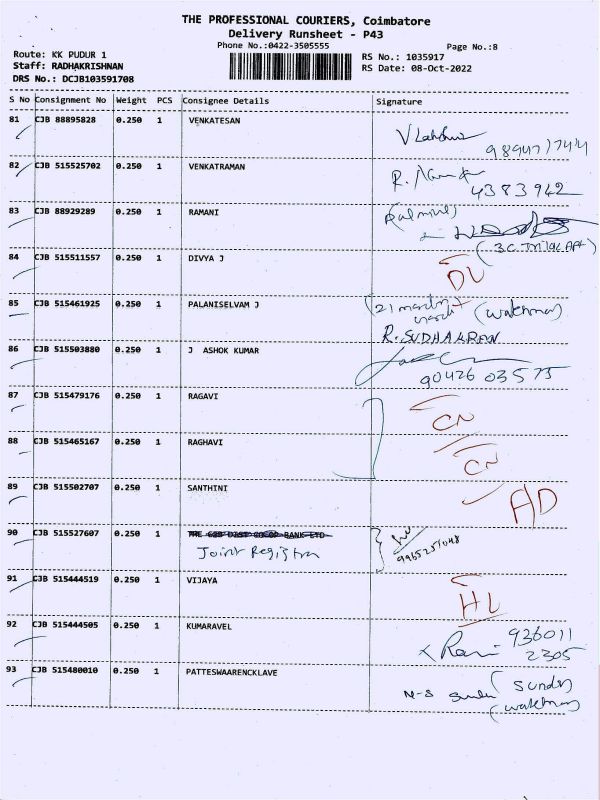 THE PROFESSIONAL COURIERS, Coimbatore
Delivery Runsheet - P43
Phone No.:0422-3505555
Page No.:8
Route: KK PUDUR 1
RS No.: 1035917
Staff: RADHAKRISHNAN
RS Date: 08-Oct-2022
DRS No.: DCJB103591708
S No Consignment No Weight PCS Consignee Details Signature
81 CJB 88895828 0.250 1 VENKATESAN
82 CJB 515525702 0.250 1 VENKATRAMAN
4383942
83 CJB 88929289 0.250 1 RAMANI
84 CJB 515511557 0.250 1 DIVYA J
DL
85 CJB 515461925 0.250 1 PALANISELVAM J
(watchman)
R.SUDHAKREN
86 CJB 515503880 0.250 1 J ASHOK KUMAR
90426 03575
87 CJB 515479176 0.250 1 RAGAVI
CN
88 CJB 515465167 0.250 1 RAGHAVI
CN
89 CJB 515502707 0.250 1 SANTHINI
A/D
90 CJB 515527607 0.250 1
Joint Registra
91 CJB 515444519 0.250 1 VIJAYA
HL
92 CJB 515444505 0.250 1 KUMARAVEL
936011
2305
93 CJB 515480010 0.250 1 PATTESWAARENCKLAVE
(Sunder)
(watchman)